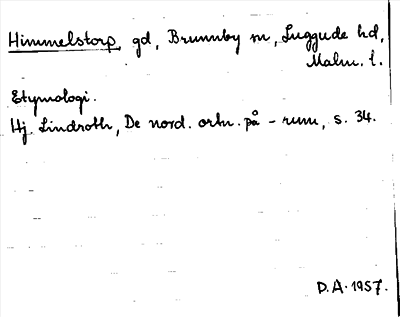 Himmelstorp, gd, Brunnby sn, Luggude hd,
Malm. l.
Etymologi.
Hj. Lindroth, De nord. ortn. på - rum, s. 34.
D.A. 1957.